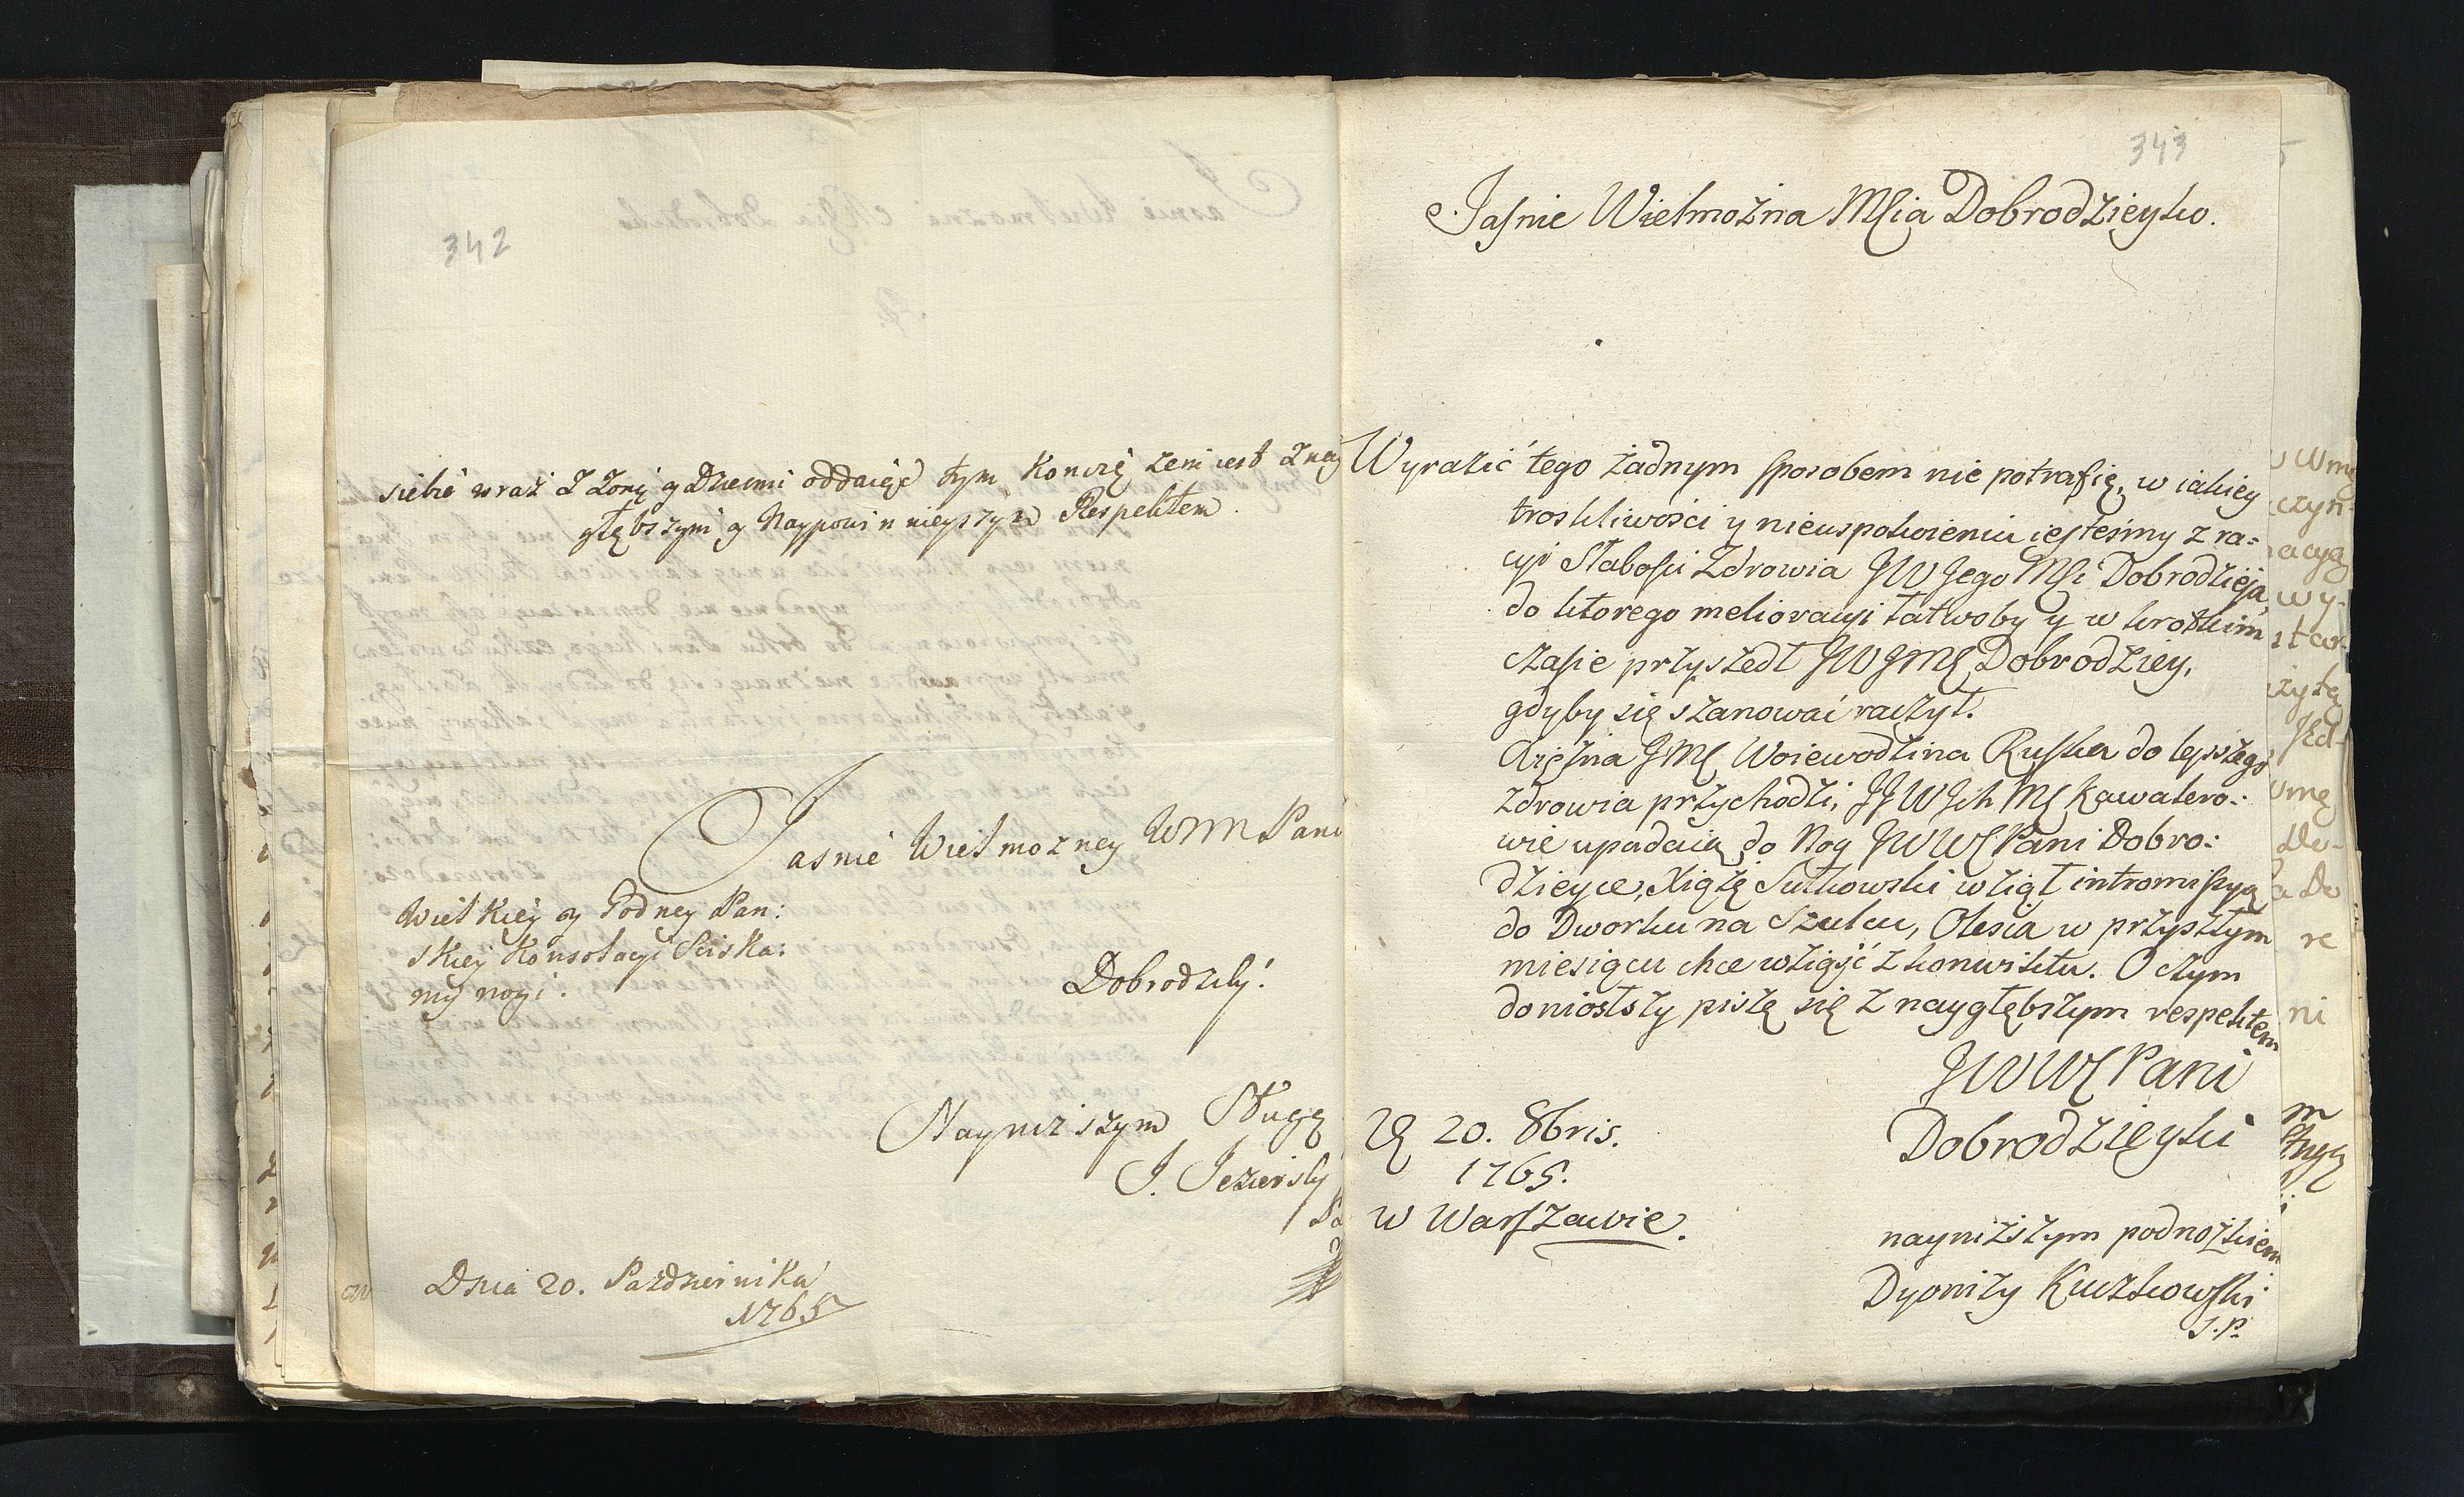 342
siebie wraz z Zoną y Dziecmi oddaięć tym Konczę zem iest Znay
głębszym y Naypowinnieyszym Respektem.
Jasnie Wielmozney WMM Pani
Wielkiey y Godney Pan:
skiey Konsolacyi Sciska:
my nogi.
Dobrodziki
Nayniższym Sługą
J. Jezierski
Dnia 20. Pazdziernika
1765
343
Jaśnie Wielmożna Mścia Dobrodzieyko.
Wyrazić tego żadnym sposobem nie potrafię, w iakiey
troskliwości y nieuspokoieniu iesteśmy z ra=
cyi Słabości Zdrowia JW Jego Mści Dobrodzieja,
do ktorego melioracyi łatwoby y w krotkim
czasie przyszedł JWJMć Dobrodziey,
gdyby się szanować raczył.
Xiężna JMć Woiewodzina Ruska do lepszego
zdrowia przychodzi, JJWJch Mć Kawalero:
wie upadaią do Nog JWWć Pani Dobro:
dzieyce, Xiążę Sułkowski wziął intromissyą
do Dworku na Szulcu, Olesia w przyszłym
miesiącu chce wziąść z konwiktu. O czym
doniosłszy piszę się z naygłębszym respektem
JWWć Pani
Dobrodzieyki
20. 8bris.
1765.
w Warszawie.
nayniższym podnożkiem
Dyonizy Kuczkowski
S.P.